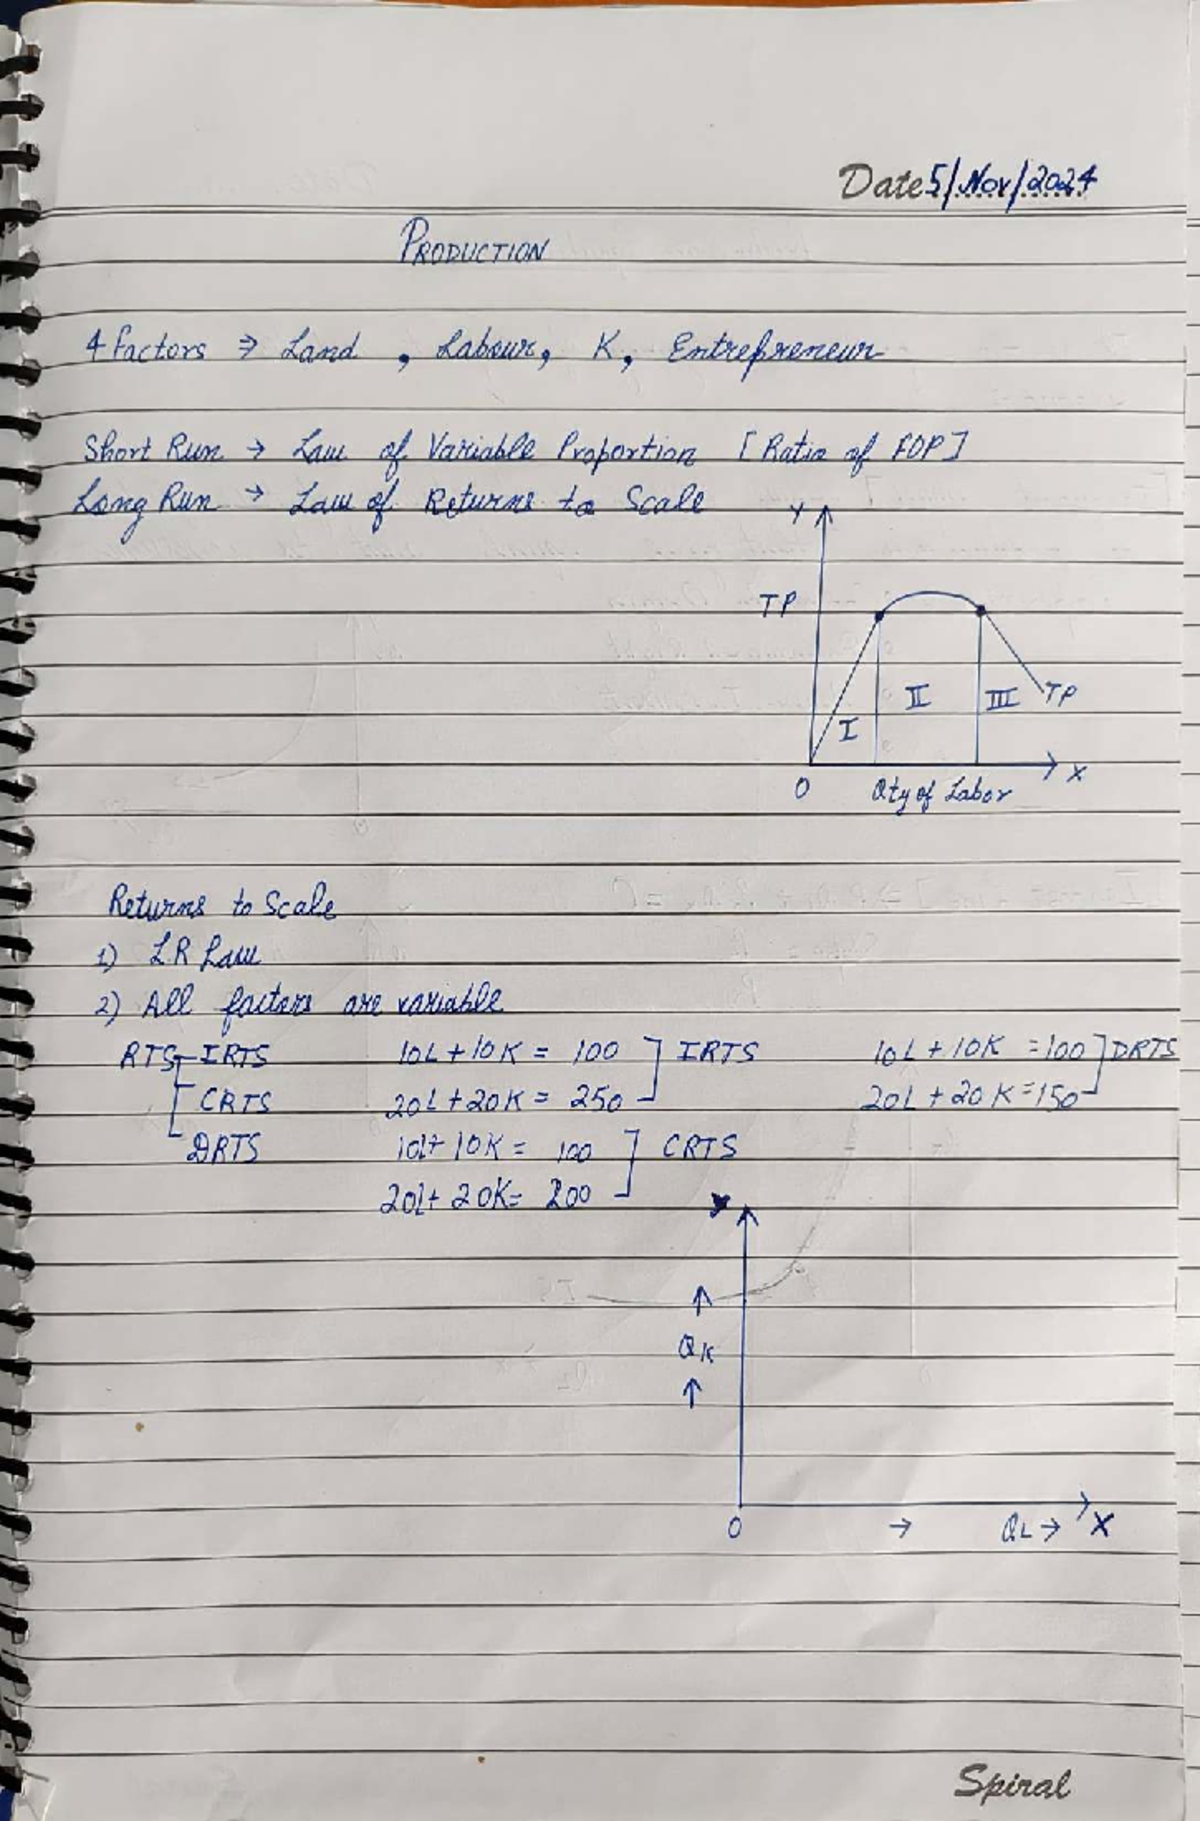 Date 5/Nov/2024
PRODUCTION
4 factors ⇒ Land , Labour, K, Entrepreneur
Short Run → Law of Variable Proportion [Ratio of FOP]
Long Run → Law of Returns to Scale
Y
TP
I II III TP
O Qty of Labor X
Returns to Scale
1) LR Law
2) All factors are variable
RTS IRTS 10L+10K = 100 ] IRTS 10L+10K = 100 ] DRTS
CRTS 20L+20K = 250 20L+20K = 150
DRTS 10L+10K = 100 ] CRTS
20L+20K= 200
Y
↑
QK
↑
O → QL → X
Spiral